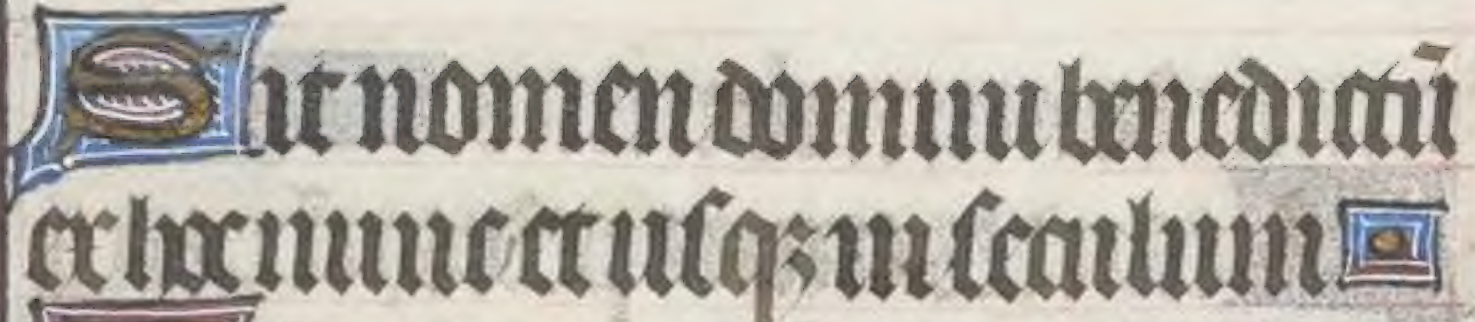 Sit nomen domini benedictū
ex hoc nunc et usqꝫ in seculum